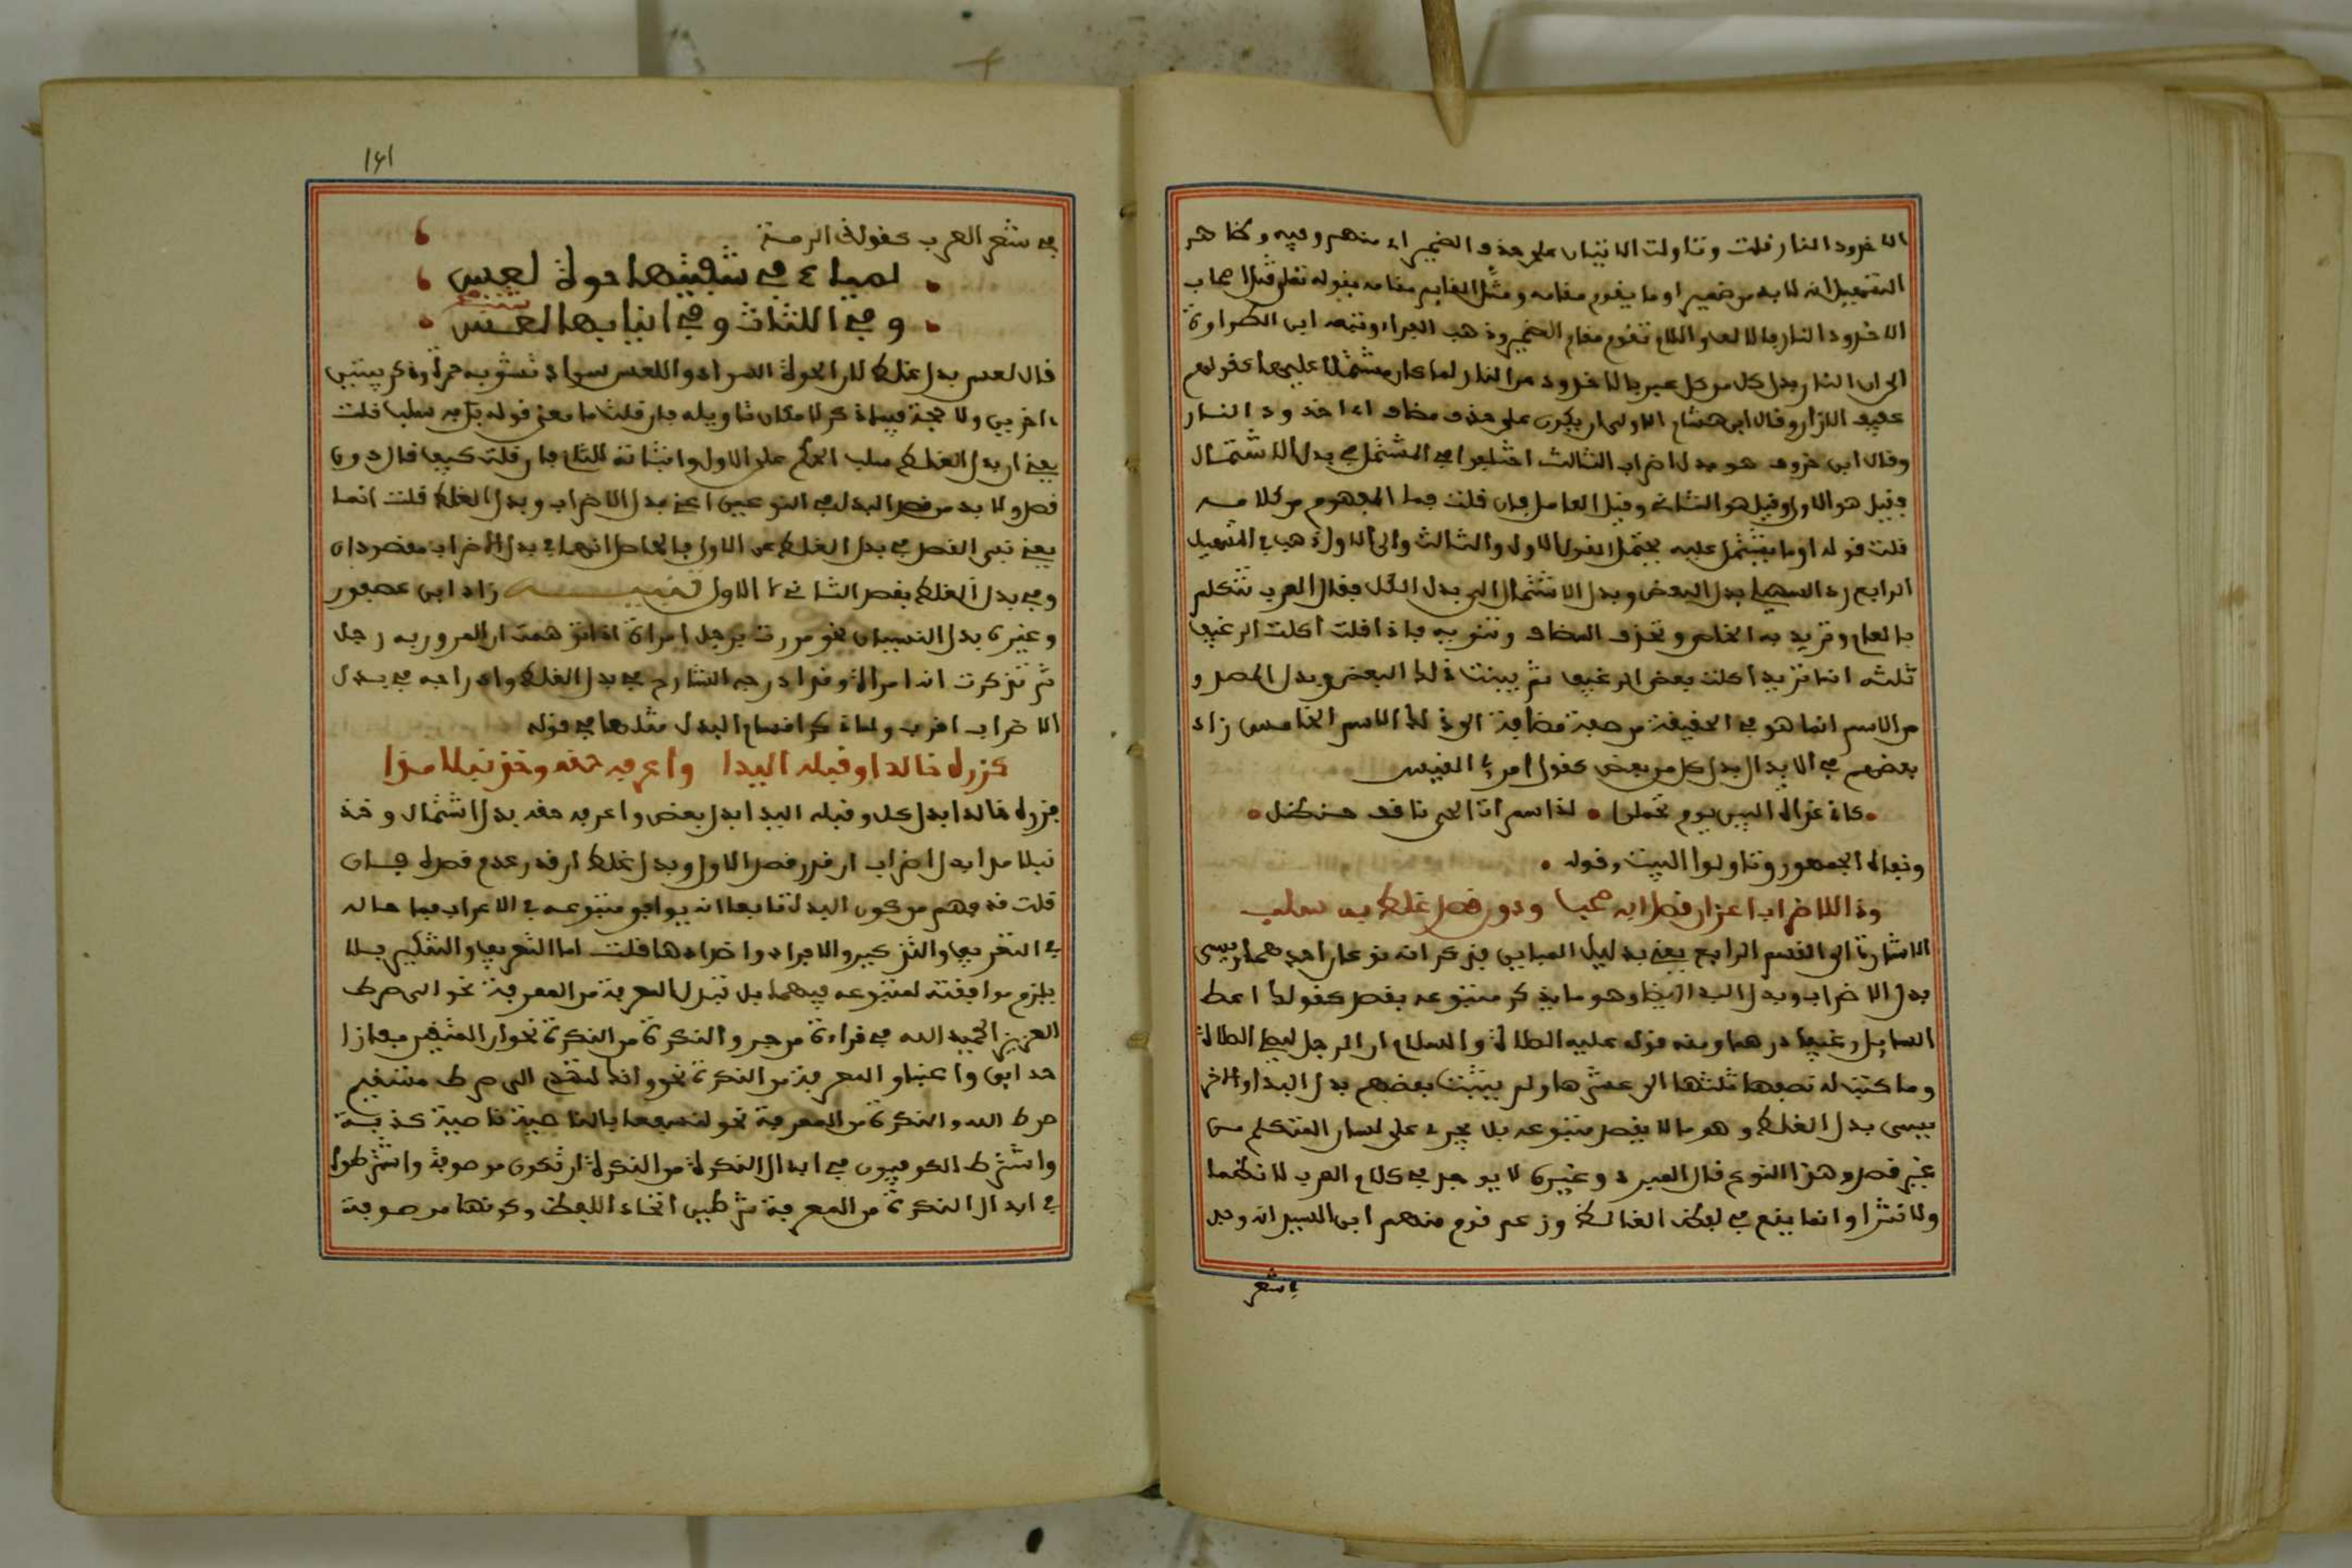 الاخدود النار قلت وتاولت الاثنتان على حذف الضمير اي منهم وفيه وظاهر
التسهيل انه لا بد من ضمير او ما يقوم مقامه ومثل القايم مقامه بقوله تعلى قتل اصحاب
الاخدود النار بالالف واللام تقوم مقام الضمير وذهب الفراء وتبعه ابن الطراوة
الى ان النار بدل كل من كل عبر بالاخدود عن النار لما كان مشتملا عليها كقولهم
عفيف الازار وقال ابن هشام الاولى ان يكون على حذف مضاف اي اخدود النار
وقال ابن خروف هو بدل اضراب الثالث اختلفوا في المشتمل في بدل الاشتمال
فقيل هو الاول وقيل هو الثاني وقيل العامل فان قلت فما المفهوم من كلامه
قلت قوله او ما يشتمل عليه يحتمل القول الاول والثالث والى الاول ذهب في التسهيل
الرابع رد السهيلي بدل البعض وبدل الاشتمال الى بدل الكل فقال العرب تتكلم
بالعام وتريد به الخاص وتحذف المضاف وتنويه فاذا قلت اكلت الرغيف
ثلثه انما تريد اكلت بعض الرغيف ثم بينت ذلك البعض وبدل المصدر
من الاسم انما هو في الحقيقة من صفة مضافة الى ذلك الاسم الخامس زاد
بعضهم في الابدال بدل كل من بعض كقول امرئ القيس
• كاني غداة البين يوم تحملوا • لدا سمرات الحي ناقف حنظل •
ونفاه الجمهور وتاولوا البيت وقوله •
وذا للاضراب اعز ان قصدا صحب ودون قصد غلط به سلب
الاشارة الى القسم الرابع يعني بدليل المباين فذكر انه نوعان احدهما يسمى
بدل الاضراب وبدل البدا ايضا وهو ما يذكر متبوعه بقصد كقولك اعط
السايل رغيفا درهما ومنه قوله عليه الصلاة والسلام ان الرجل ليصلي الصلاة
وما كتب له نصفها ثلثها الى عشرها ولم يثبت بعضهم بدل البدا والاخر
يسمى بدل الغلط وهو ما لا يقصد متبوعه بل يجري على لسان المتكلم من
غير قصد وهذا النوع قال المبرد وغيره لا يوجد في كلام العرب لا نظما
ولا نثرا وانما يقع في لفظ الغالط وزعم قوم منهم ابن السيد انه وجد
في شعر
١٦١
في شعر العرب كقول ذي الرمة
لمياء في شفتيها حوة لعس
وفي اللثات وفي انيابها شنب
قال لعس بدل غلط لان الحوة السواد واللعس سواد تشوبه حمرة وذكر بيتين
اخرين ولا حجة فيما ذكر لامكان تاويله فان قلت ما معنى قوله به سلب قلت
يعني ان بدل الغلط سلب الحكم عن الاول واثباته للثاني فان قلت كيف قال دون
قصد ولا بد من قصد البدل في النوعين اعني بدل الاضراب وبدل الغلط قلت انما
يعني نفي القصد في بدل الغلط عن الاول فالحاصل انهما في بدل الاضراب مقصودان
وفي بدل الغلط يقصد الثاني لا الاول تنبيه زاد ابن عصفور
وغيره بدل النسيان نحو مررت برجل امراة اذا توهمت ان الممرور به رجل
ثم تذكرت انه امراة وقد ادرجه الشارح في بدل الغلط وادراجه في بدل
الاضراب اقرب ولما ذكر اقسام البدل مثلها في قوله
كزره خالدا وقبله اليدا واعرفه حقه وخذ نبلا مدا
فزره خالدا بدل كل وقبله اليدا بدل بعض واعرفه حقه بدل اشتمال وخذ
نبلا مدا بدل اضراب ان قدر قصد الاول وبدل غلط ان قدر عدم قصده فان
قلت قد فهم من كون البدل تابعا انه يوافق متبوعه في الاعراب فما حاله
في التعريف والتذكير والافراد واضدادها قلت اما التعريف والتنكير فلا
يلزم موافقته لمتبوعه فيهما بل تبدل المعرفة من المعرفة نحو الى صراط
العزيز الحميد الله في قراءة من جر والنكرة من النكرة نحو ان للمتقين مفازا
حدايق واعنابا والمعرفة من النكرة نحو وانك لتهدي الى صراط مستقيم
صراط الله والنكرة من المعرفة نحو لنسفعا بالناصية ناصية كذبة
واشترط الكوفيون في ابدال النكرة من النكرة ان تكون موصوفة واشترطوا
في ابدال النكرة من المعرفة شرطين اتحاد اللفظ وكونها موصوفة